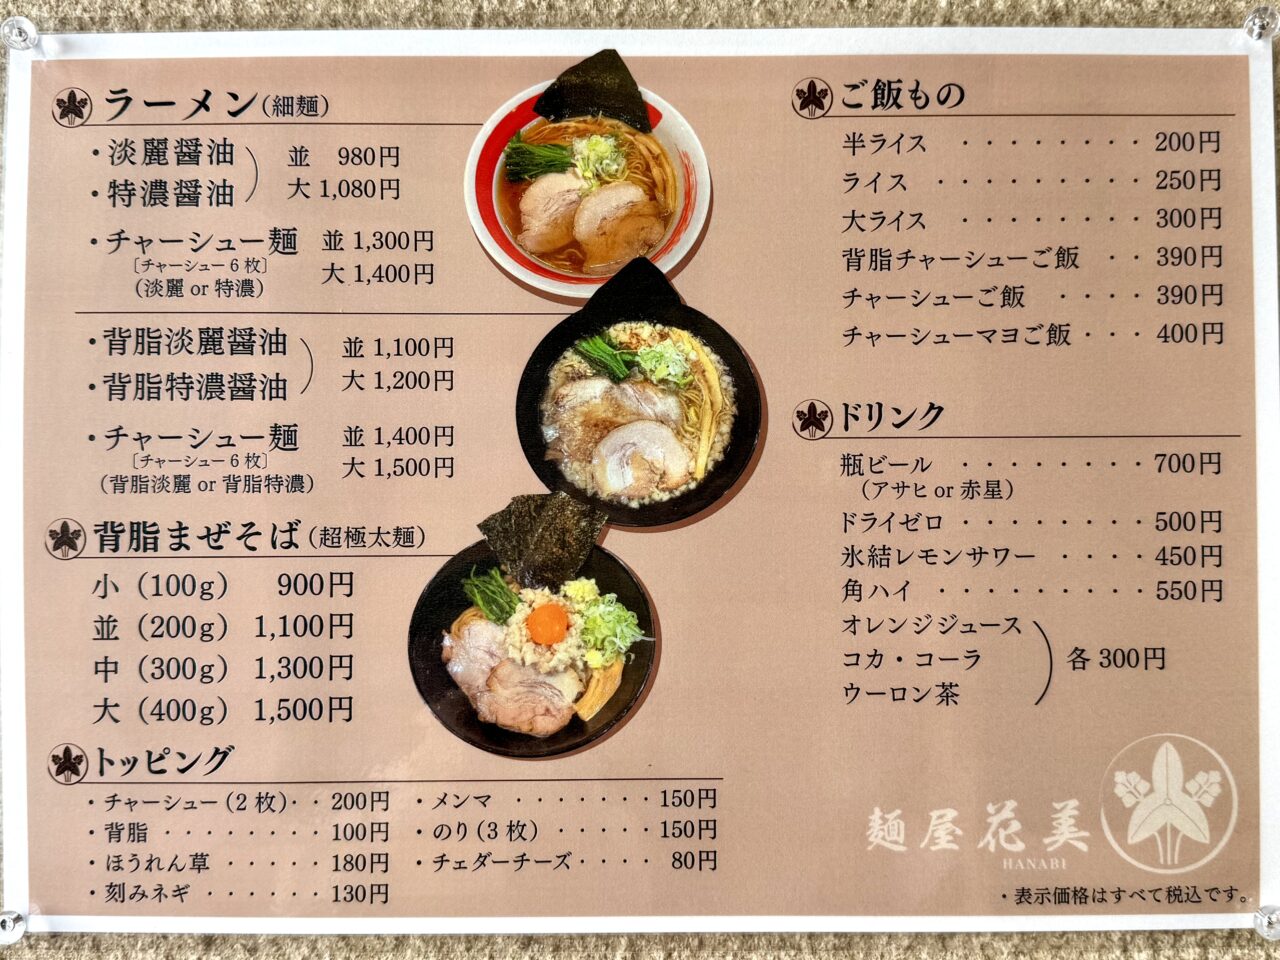 ラーメン(細麺)
・淡麗醤油
・特濃醤油
並 980円
大 1,080円
・チャーシュー麺
[チャーシュー6枚]
(淡麗 or 特濃)
並 1,300円
大 1,400円
・背脂淡麗醤油
・背脂特濃醤油
並 1,100円
大 1,200円
・チャーシュー麺
[チャーシュー6枚]
(背脂淡麗 or 背脂特濃)
並 1,400円
大 1,500円
背脂まぜそば(超極太麺)
小 (100g) 900円
並 (200g) 1,100円
中 (300g) 1,300円
大 (400g) 1,500円
トッピング
・チャーシュー(2枚)・・200円
・背脂 ・・・・・・・・100円
・ほうれん草 ・・・・・180円
・刻みネギ ・・・・・・130円
・メンマ ・・・・・・・150円
・のり(3枚) ・・・・・150円
・チェダーチーズ・・・・ 80円
ご飯もの
半ライス ・・・・・・・・200円
ライス ・・・・・・・・・250円
大ライス ・・・・・・・・300円
背脂チャーシューご飯 ・・390円
チャーシューご飯 ・・・・390円
チャーシューマヨご飯・・・400円
ドリンク
瓶ビール ・・・・・・・・700円
(アサヒ or 赤星)
ドライゼロ・・・・・・・・500円
氷結レモンサワー ・・・・450円
角ハイ ・・・・・・・・・550円
オレンジジュース
コカ・コーラ
ウーロン茶
各300円
麺屋花美
HANABI
・表示価格はすべて税込です。